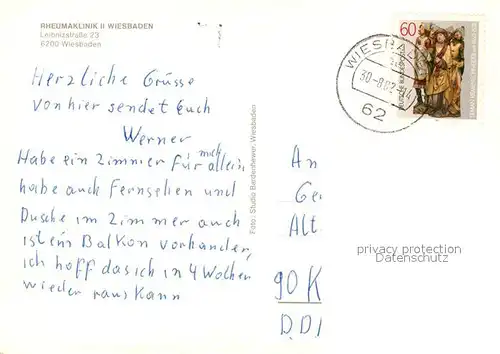 RHEUMAKLINIK II WIESBADEN
Leibnizstraße 23
6200 Wiesbaden
Herzliche Grüsse
von hier sendet Euch
Werner
Habe ein Zimmer für mich allein,
habe auch Fernsehen und
Dusche im Zimmer auch
ist ein Balkon vorhanden,
ich hoff das ich in 4 Wochen
wieder raus kann
Foto: Studio Berdenhewer, Wiesbaden
WIESBADEN
62
60
DEUTSCHE BUNDESPOST
An
Ge
Alt
90 K
DD
privacy protection
Datenschutz